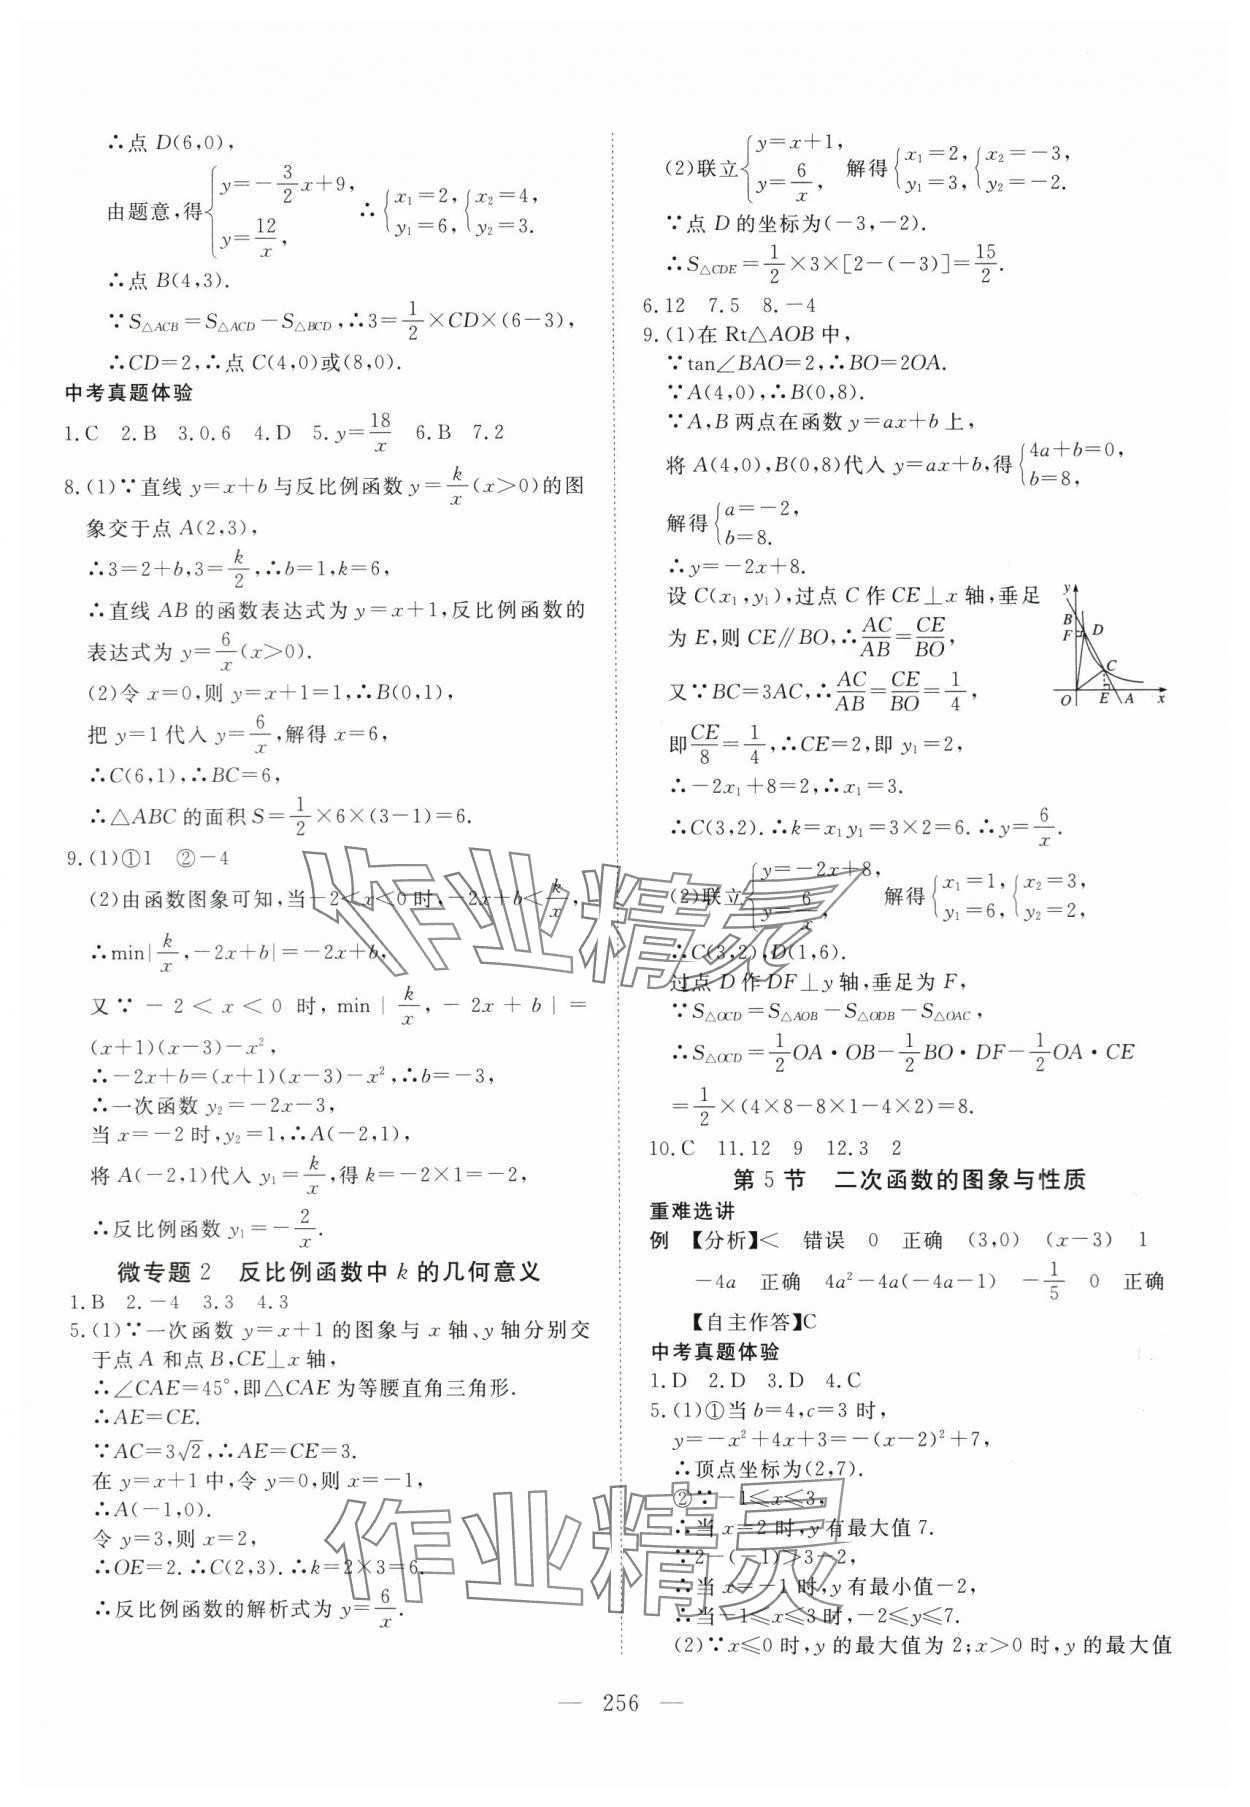 ∴点 D(6,0),
由题意,得{y=-3/2x+9, y=12/x, ∴{x₁=2, y₁=6, {x₂=4, y₂=3.
∴点 B(4,3).
∵S△ACB=S△ACD-S△BCD,∴3=1/2×CD×(6-3),
∴CD=2,∴点 C(4,0)或(8,0).
中考真题体验
1.C 2.B 3.0.6 4.D 5.y=18/x 6.B 7.2
8.(1)∵直线 y=x+b 与反比例函数 y=k/x(x>0)的图
象交于点 A(2,3),
∴3=2+b,3=k/2,∴b=1,k=6,
∴直线 AB 的函数表达式为 y=x+1,反比例函数的
表达式为 y=6/x(x>0).
(2)令 x=0,则 y=x+1=1,∴B(0,1),
把 y=1代入 y=6/x,解得 x=6,
∴C(6,1),∴BC=6,
∴△ABC 的面积 S=1/2×6×(3-1)=6.
9.(1)①1 ②-4
(2)由函数图象可知,当-2<x<0时,-2x+b<k/x,
∴min|k/x,-2x+b|=-2x+b,
又∵-2<x<0 时,min|k/x,-2x+b|=
(x+1)(x-3)-x²,
∴-2x+b=(x+1)(x-3)-x²,∴b=-3,
∴一次函数 y₂=-2x-3,
当 x=-2时,y₂=1,∴A(-2,1),
将 A(-2,1)代入 y₁=k/x,得 k=-2×1=-2,
∴反比例函数 y₁=-2/x.
微专题 2 反比例函数中 k 的几何意义
1.B 2.-4 3.3 4.3
5.(1)∵一次函数 y=x+1 的图象与 x 轴、y 轴分别交
于点 A 和点 B,CE⊥x 轴,
∴∠CAE=45°,即△CAE 为等腰直角三角形.
∴AE=CE.
∵AC=3√2,∴AE=CE=3.
在 y=x+1中,令 y=0,则 x=-1,
∴A(-1,0).
令 y=3,则 x=2,
∴OE=2.∴C(2,3).∴k=2×3=6.
∴反比例函数的解析式为 y=6/x.
(2)联立{y=x+1, y=6/x, 解得{x₁=2, y₁=3, {x₂=-3, y₂=-2.
∵点 D 的坐标为(-3,-2).
∴S△CDE=1/2×3×[2-(-3)]=15/2.
6.12 7.5 8.-4
9.(1)在 Rt△AOB 中,
∵tan∠BAO=2,∴BO=2OA.
∵A(4,0),∴B(0,8).
∵A,B 两点在函数 y=ax+b 上,
将 A(4,0),B(0,8)代入 y=ax+b,得{4a+b=0, b=8,
解得{a=-2, b=8.
∴y=-2x+8.
设 C(x₁,y₁),过点 C 作 CE⊥x 轴,垂足
为 E,则 CE∥BO,∴AC/AB=CE/BO,
又∵BC=3AC,∴AC/AB=CE/BO=1/4,
即CE/8=1/4,∴CE=2,即 y₁=2,
∴-2x₁+8=2,∴x₁=3.
∴C(3,2).∴k=x₁y₁=3×2=6.∴y=6/x.
y B F D C O E A x
(2)联立{y=-2x+8, y=6/x, 解得{x₁=1, y₁=6, {x₂=3, y₂=2,
∴C(3,2),D(1,6).
过点 D 作 DF⊥y 轴,垂足为 F,
∵S△OCD=S△AOB-S△ODB-S△OAC,
∴S△OCD=1/2OA·OB-1/2BO·DF-1/2OA·CE
=1/2×(4×8-8×1-4×2)=8.
10.C 11.12 9 12.3 2
第 5 节 二次函数的图象与性质
重难选讲
例 【分析】< 错误 0 正确 (3,0) (x-3) 1
-4a 正确 4a²-4a(-4a-1) -1/5 0 正确
【自主作答】C
中考真题体验
1.D 2.D 3.D 4.C
5.(1)①当 b=4,c=3 时,
y=-x²+4x+3=-(x-2)²+7,
∴顶点坐标为(2,7).
②∵-1≤x≤3,
∴当 x=2 时,y 有最大值 7.
∵2-(-1)>3-2,
∴当 x=-1 时,y 有最小值-2,
∴当-1≤x≤3时,-2≤y≤7.
(2)∵x≤0 时,y 的最大值为 2;x>0 时,y 的最大值
— 256 —
作业精灵
作业精灵